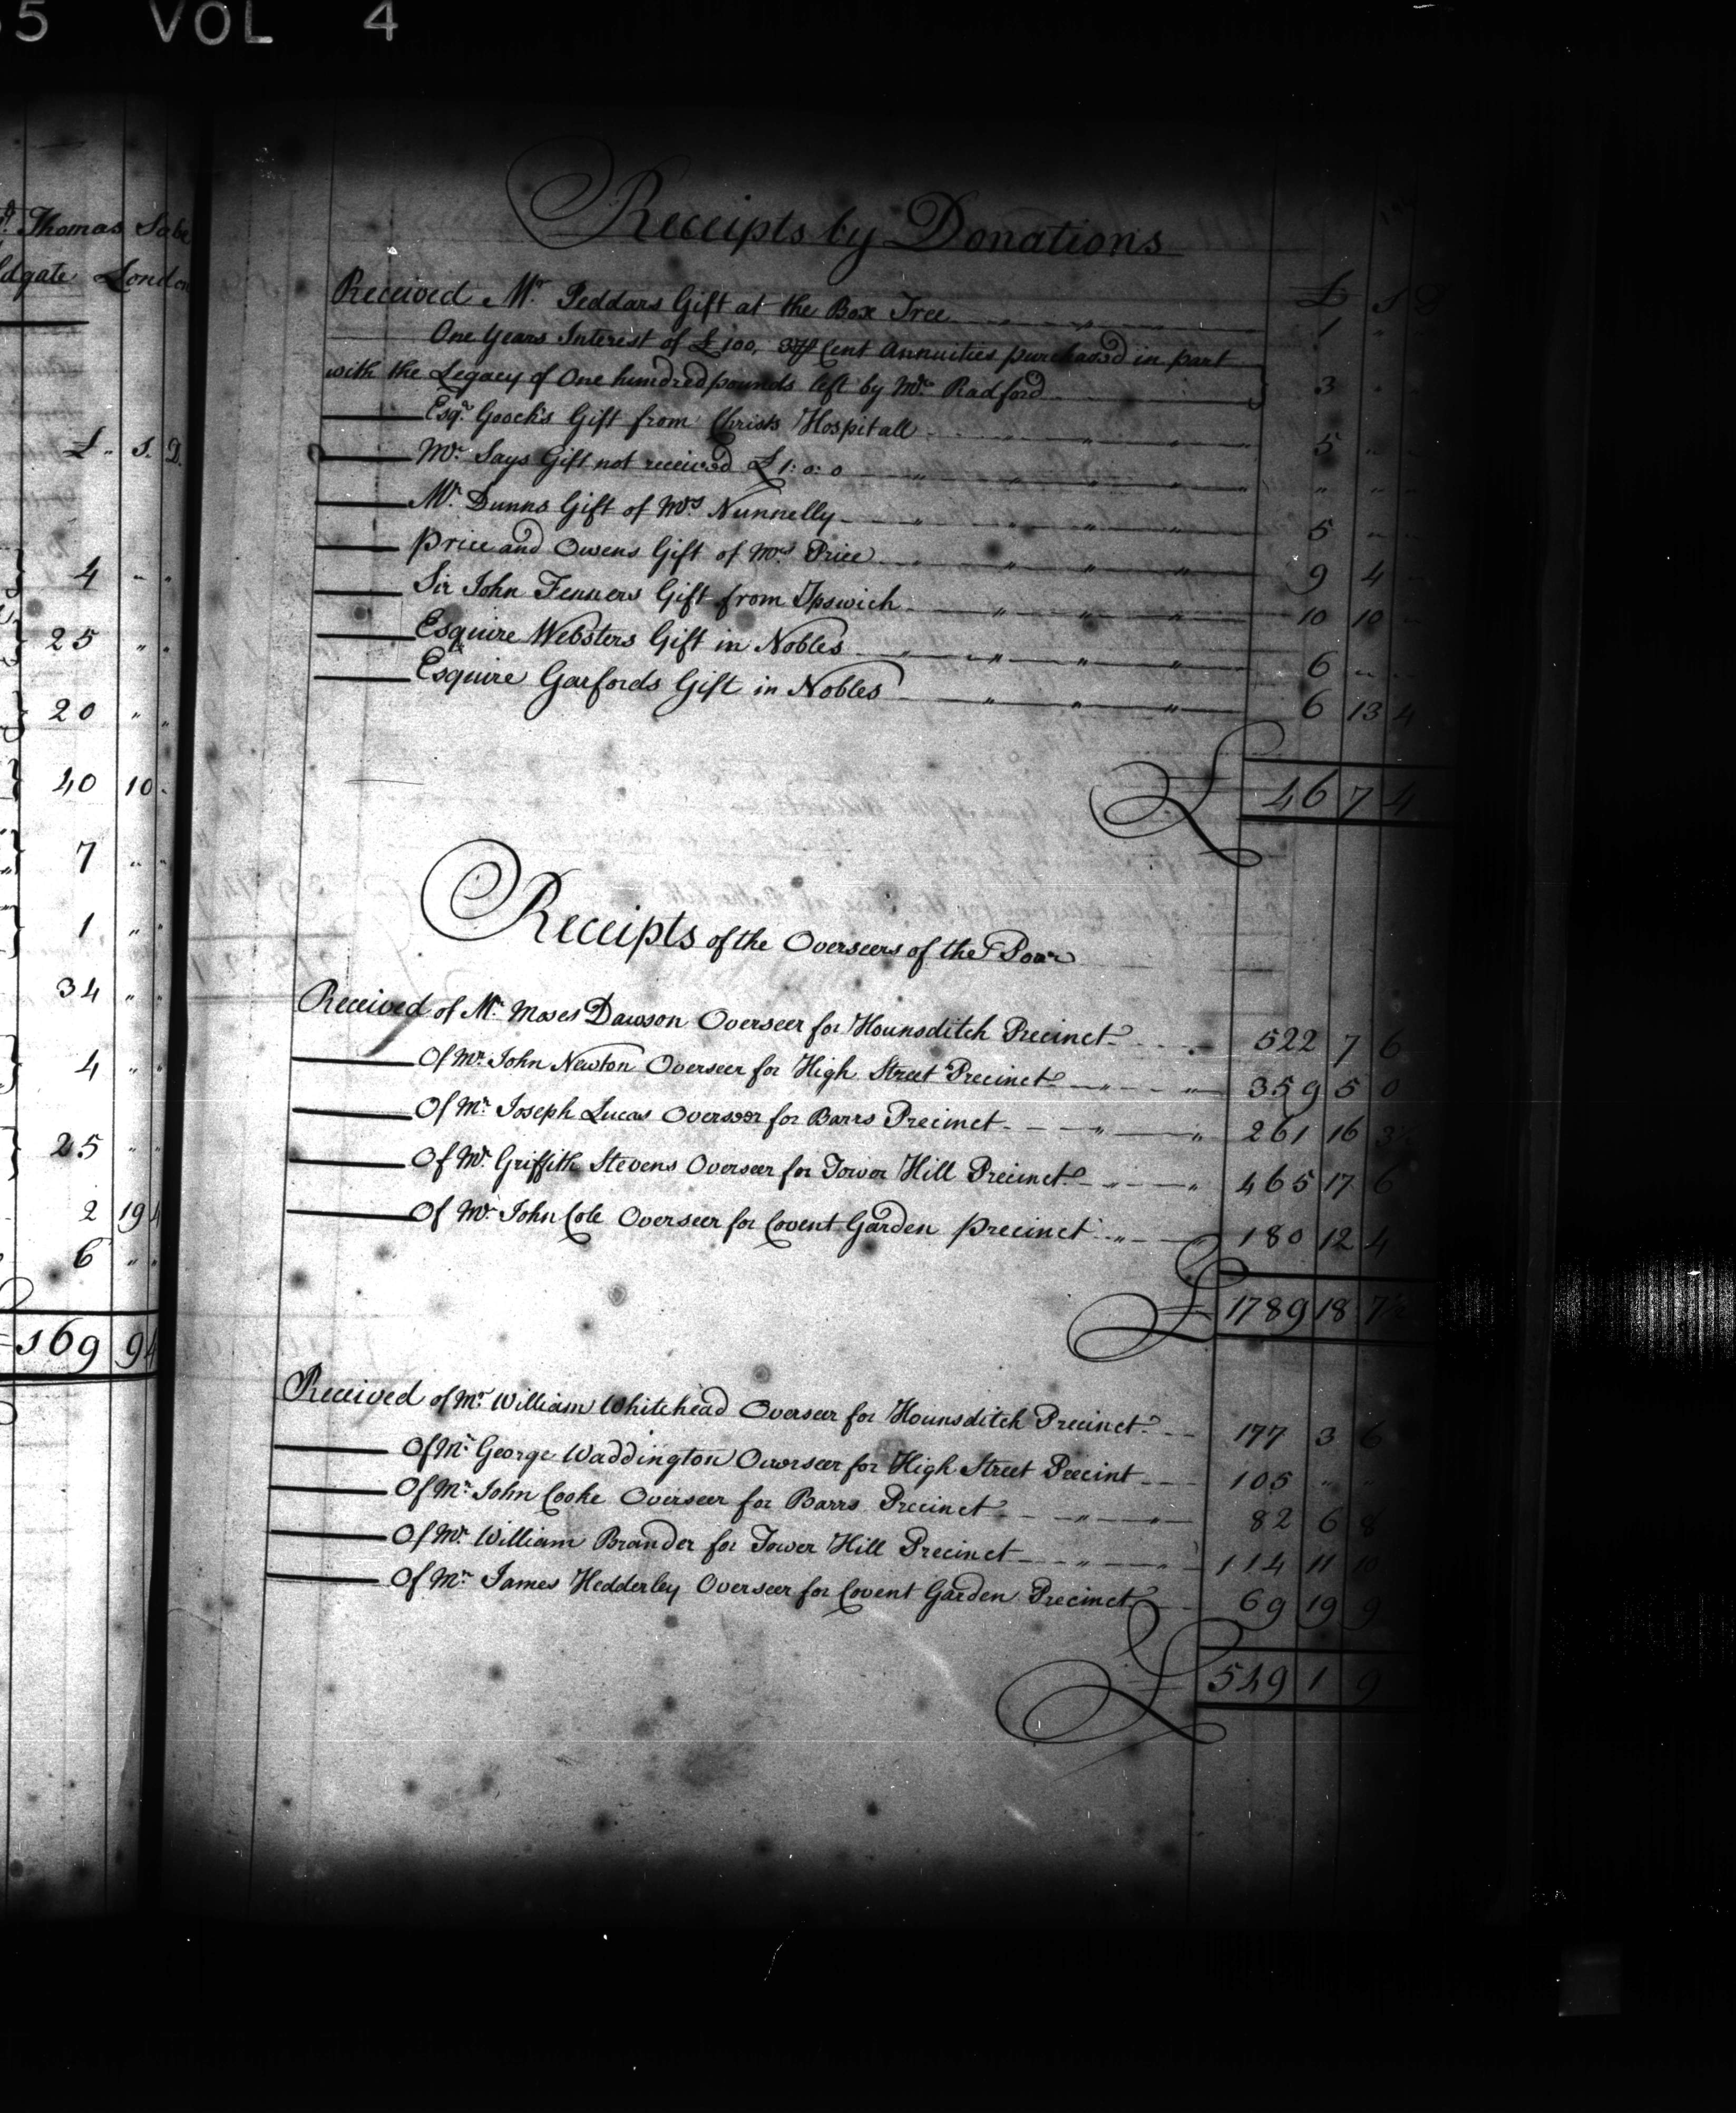 55 VOL 4
Thomas Sabe
ldgate London
£ s. D.
4 " "
25 " "
20 " "
40 10 "
7 " "
1 " "
34 " "
4 " "
25 " "
2 19 4
6 " "
169 9 4
Receipts by Donations
£ S D
Received Mr. Peddars Gift at the Box Tree 1 " "
One Years Interest of £100, 3 ⅌ Cent Annuities purchased in part
with the Legacy of One hundred pounds left by Mrs. Radford 3 " "
Esqr. Gooch's Gift from Christs Hospitall 5 " "
Mr. Says Gift not received £1:0:0 " " "
Mr. Dunns Gift of Mrs. Nunnelly 5 " "
Price and Owens Gift of Mrs. Price 9 4 "
Sir John Fenners Gift from Ipswich 10 10 "
Esquire Websters Gift in Nobles 6 " "
Esquire Garfords Gift in Nobles 6 13 4
£ 46 7 4
Receipts of the Overseers of the Poor
Received of Mr. Moses Dawson Overseer for Hounsditch Precinct 522 7 6
Of Mr. John Newton Overseer for High Street Precinct 359 5 0
Of Mr. Joseph Lucas Overseer for Barrs Precinct 261 16 3½
Of Mr. Griffith Stevens Overseer for Tower Hill Precinct 465 17 6
Of Mr. John Cole Overseer for Covent Garden Precinct 180 12 4
£ 1789 18 7½
Received of Mr. William Whitehead Overseer for Hounsditch Precinct 177 3 6
Of Mr. George Waddington Overseer for High Street Precint 105 " "
Of Mr. John Cooke Overseer for Barrs Precinct 82 6 8
Of Mr. William Brander for Tower Hill Precinct 114 11 10
Of Mr. James Hedderley Overseer for Covent Garden Precinct 69 19 9
£ 549 1 9